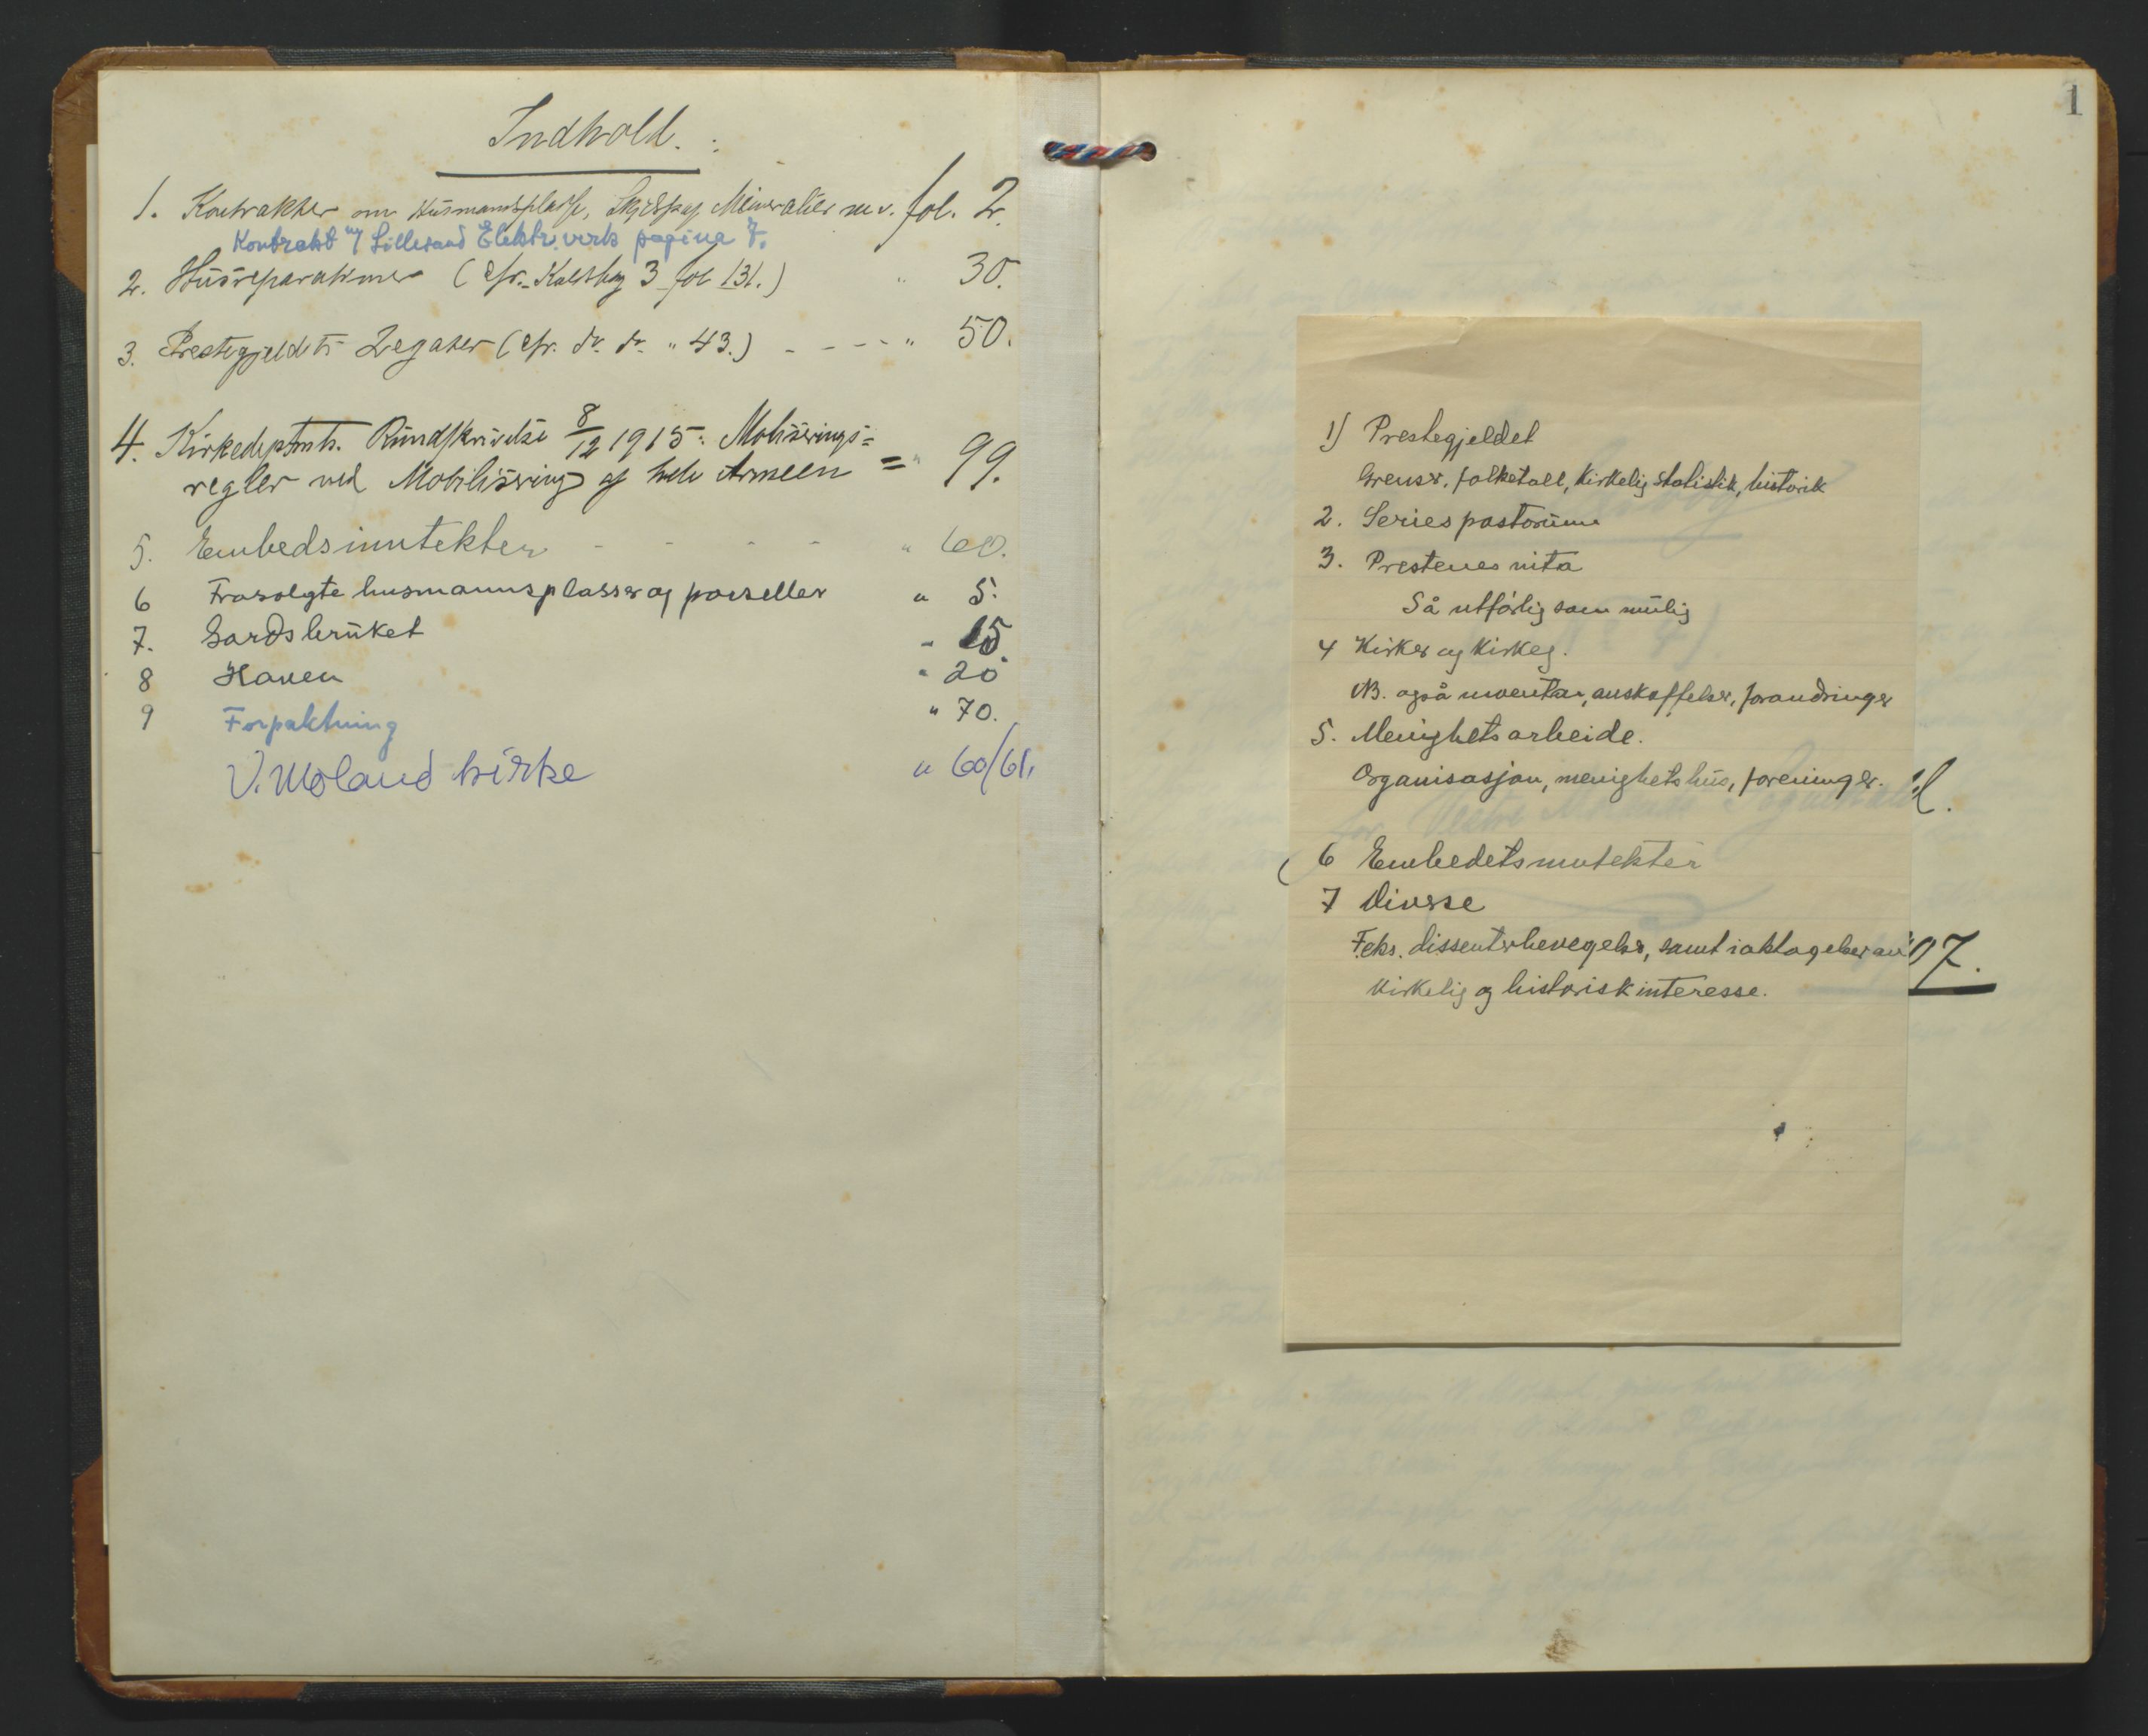 Indhold.
1. Kontrakter om Husmandsplasse, Mineralier m.v. fol. 2.
Kontrakt m/ Lillesand Elektr. verk pagina 7.
2. Husreparationer (Cfr. Kaldsbog 3 fol 131.) " 30.
3. Prestegjeldets Legater (Cfr. do. do. " 43.) - - - - " 50.
4. Kirkedeptmts. Rundskrivelse 8/12 1915: Mobiserings=
regler ved Mobilisering af hele Armeen = " 99.
5. Embedsinntekter - - - - " 60.
6 Frasolgte husmannsplasser og parseller " 5.
7. Gardsbruket " 15.
8 Haven " 20
9 Forpaktning " 70.
V. Moland kirke " 60/61.
1
1) Prestegjeldet
Grenser, folketall, kirkelig statistik, historik
2. Series pastorum
3. Prestenes vita
Så utførlig som mulig
4 Kirker og kirkeg.
NB. også inventar, anskaffelser, forandringer
5. Menighetsarbeide.
Organisasjon, menighetshus, foreninger.
6 Embedetsinntekter
7 Diverse
F.eks. dissenterbevegelser, samt iaktagelser av
kirkelig og historisk interesse.
07.